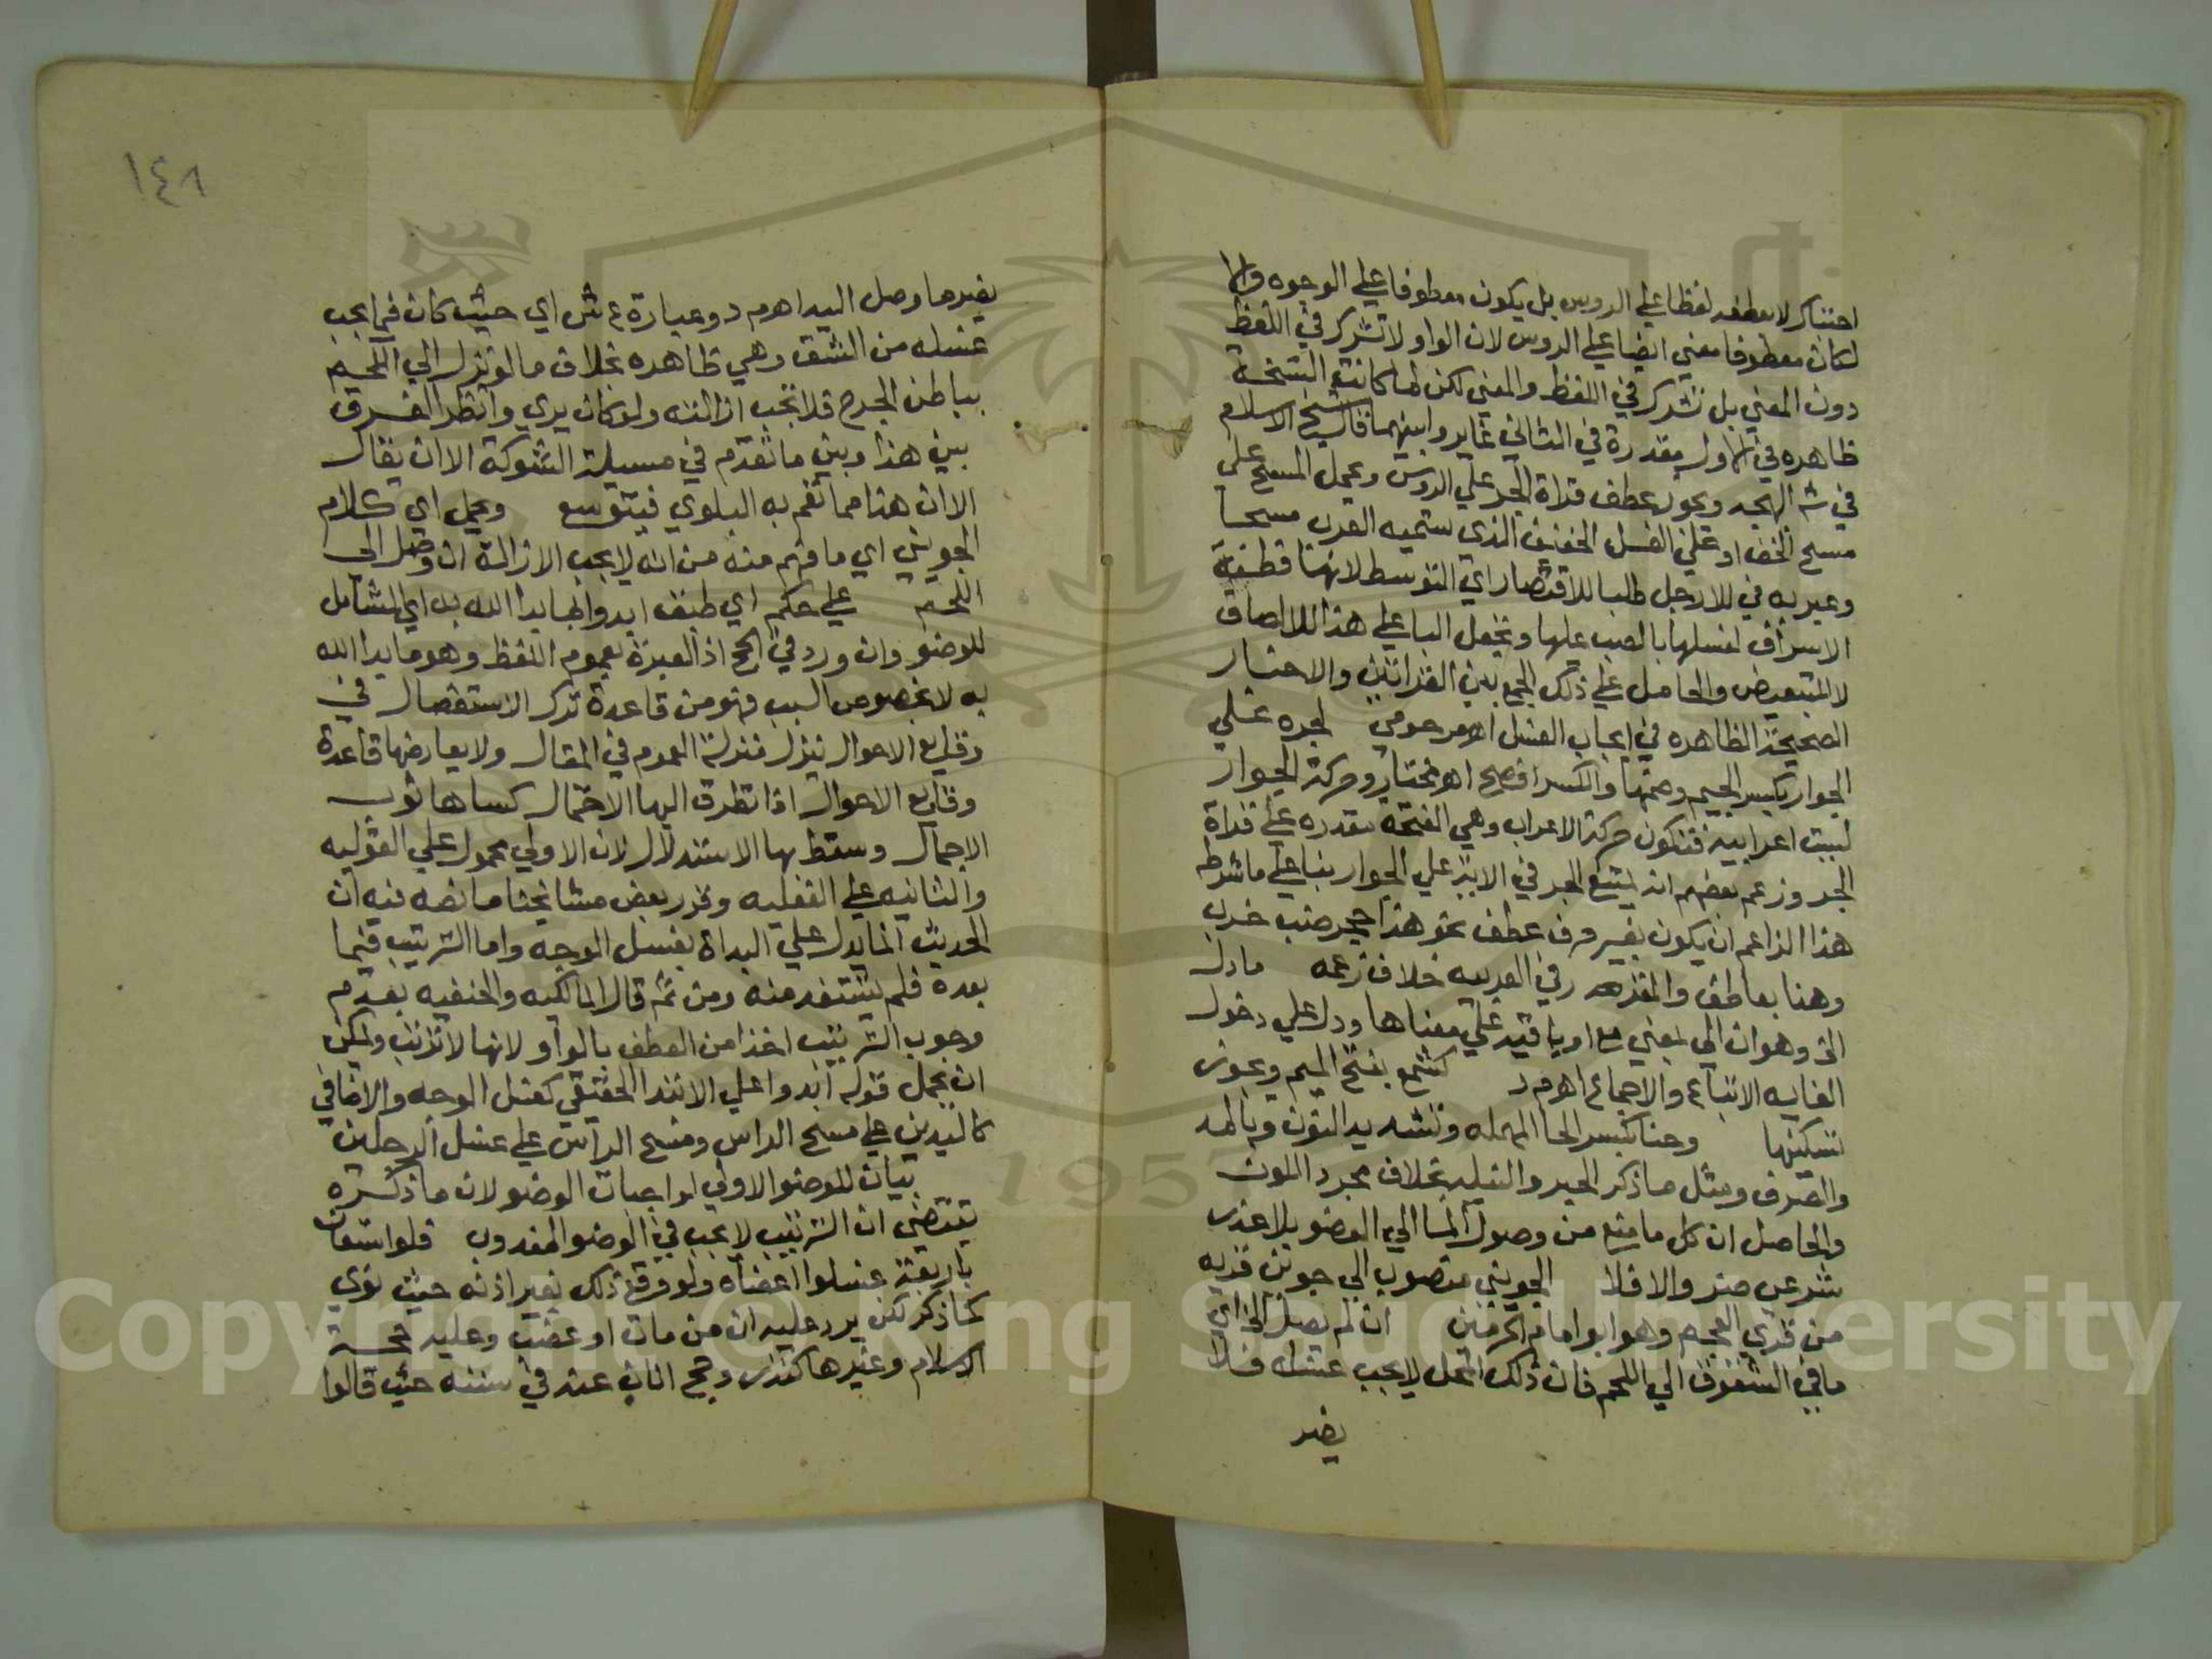 احتناكر لا بعطفه لفظا علي الروس بل يكون معطوفا علي الوجوه والا
لكان معطوفا معني ايضا علي الروس لان الواو لا تشرك في اللفظ
دون المعني بل تشرك في اللفظ والمعني لكن لما كانت النسخة
ظاهره في الاول مقدرة في الثاني تغايروا بينهما قال شيخ الاسلام
في ش البهجه ويجوز عطف قراة الجر علي الروس وحمل المسح علي
مسح الخف او علي الغسل الخفيف الذي ستميه العرب مسحا
وعبر به في الارجل طلبا للاقتصار اي التوسط لانها مظنة
الاسراف لغسلها بالصب عليها وتجعل الباء علي هذا للالصاق
لا للتبعيض والحامل علي ذلك الجمع بين القراتين والاخبار
الصحيحة الظاهره في ايجاب الغسل اهـ مرحومي لجره علي
الجوار بكسر الجيم وضمها والكسر افصح اهـ مختار وحركة الجوار
ليست اعرابية فتكون حركة الاعراب وهي الفتحة مقدره علي قراة
الجر وزعم بعضهم انه يمتنع الجر في الاية علي الجوار بنا علي ما شرطه
هذا الزاعم ان يكون بغير حرف عطف نحو هذا جحر ضب خرب
وهنا بعاطف والمقرر في العربيه خلاف زعمه مادل
الخ وهو ان الي بمعني مع او باقيه علي معناها ودل علي دخول
الغايه الاتباع والاجماع اهـ م د كشمع بفتح الميم ويجوز
تسكينها وحنا بكسر الحا المهمله وتشديد النون وبالمد
والصرف ومثل ما ذكر الحبر والنيله بخلاف مجرد اللون
والحاصل ان كل ما منع من وصول الما الي العضو بلا عذر
شرعي ضر والا فلا الجويني منصوب الي جوين قريه
من قري العجم وهو ابو امام الحرمين ان لم يصل الخ اي
ما في الشقوق الي اللحم فان ذلك المحل لا يجب غسله فلا
يضر
١٤٨
يضر ما وصل اليه اهـ م د وعبارة ع ش اي حيث كان فيما يجب
غسله من الشق وهي ظاهره بخلاف ما لو نزل الي اللحم
بباطن الجرح فلا تجب ازالته ولو كان يري وانظر الفرق
بين هذا وبين ما تقدم في مسيلة الشوكة الا ان يقال
الا ان هذا مما تعم به البلوي فيتوسع وحمل اي كلام
الجويني اي ما فهم منه من انه لا يجب الازالة ان وصل الي
اللحم علي حكم اي طبق ابدوا بما بدا الله به اي الشامل
للوضو وان ورد في الحج اذ العبرة بعموم اللفظ وهو ما بدا الله
به لا بخصوص السبب فهو من قاعدة ترك الاستفصال في
وقايع الاحوال ينزل منزلة العموم في المقال ولا يعارضها قاعدة
وقايع الاحوال اذا تطرق اليها الاحتمال كساها ثوب
الاجمال وسقط بها الاستدلال لان الاولي محمول علي القوليه
والثانيه علي الفعليه وقرر بعض مشايخنا ما نصه فيه ان
الحديث انما يدل علي البداة بغسل الوجه واما الترتيب فيما
بعده فلم يستفد منه ومن ثم قال المالكيه والحنفيه بعدم
وجوب الترتيب اخذا من العطف بالواو لانها لا ترتب ويمكن
ان يحمل قوله ابدوا علي الابتدا الحقيقي كغسل الوجه والاضافي
كاليدين علي مسح الراس ومسح الراس علي غسل الرجلين
بيان للوضو الاولي لواجبات الوضو لان ما ذكره
يقتضي ان الترتيب لا يجب في الوضو المندوب فلو استعان
باربعة غسلوا اعضاه ولو وقع ذلك بغير اذنه حيث نوي
كما ذكر لكن يرد عليه ان من مات او عضب وعليه حجة
الاسلام وغيرها كنذر وحج اناب عنه في سنته حيث قالوا